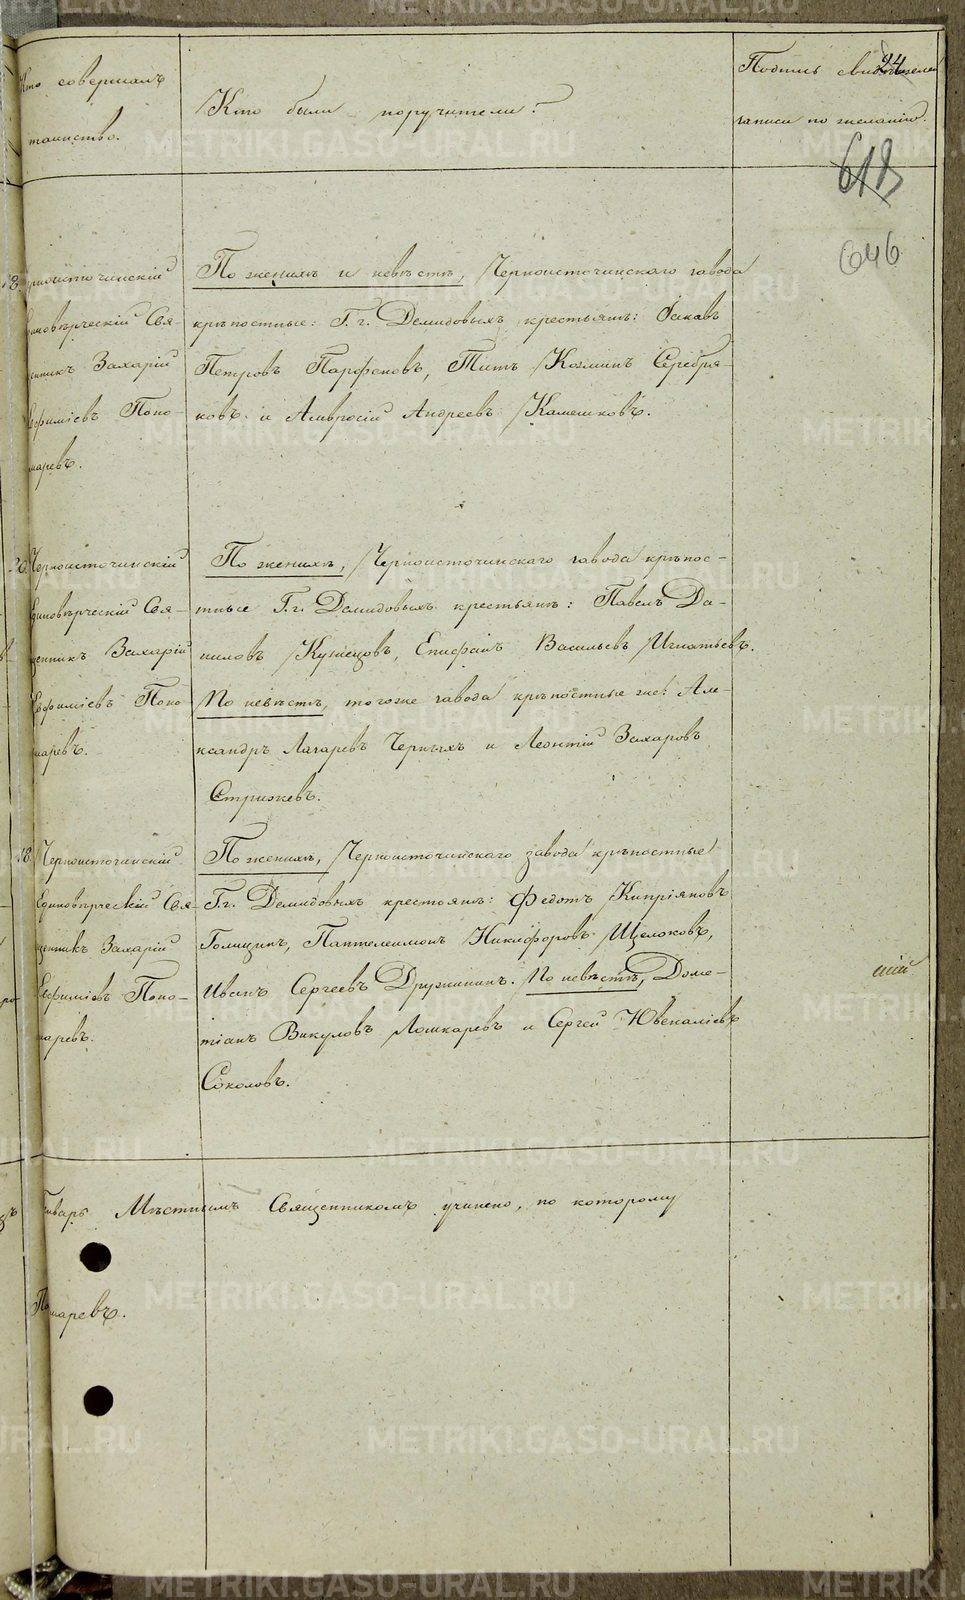 Кто совершалъ
таинство.
Кто были поручители?
Подпись свидѣтелей
записи по желанію.
24
618
646
Черноисточинскій
Единовѣрческій Свя-
щенникъ Захарій
Ефиміевъ Поно-
маревъ.
По женихѣ и невѣстѣ, Черноисточинскаго завода
крѣпостные: Г.г. Демидовыхъ крестьянѣ:
Петровъ Парфеновъ, Титъ Козминъ Серебря-
ковъ и Амвросій Андреевъ Камешковъ.
20.
Черноисточинскій
Единовѣрческій Свя-
щенникъ Захарій
Ефиміевъ Поно-
маревъ.
По женихѣ, Черноисточинскаго завода крѣпос-
тные Г.г. Демидовыхъ крестьянѣ: Павелъ Да-
ниловъ Кузнецовъ, Епифанъ Васильевъ Игнатьевъ.
По невѣстѣ, тогоже завода крѣпостные же: Але-
ксандръ Лазаревъ Черныхъ и Леонтій Захаровъ
Стрижевъ.
18.
Черноисточинскій
Единовѣрческій Свя-
щенникъ Захарій
Ефиміевъ Поно-
маревъ.
По женихѣ, Черноисточинскаго завода крѣпостные
Г.г. Демидовыхъ крестьянѣ: Федотъ Кипріяновъ
Голицинъ, Пантелеимонъ Никифоровъ Щелоковъ,
Иванъ Сергеевъ Дружининъ. По невѣстѣ, Доме-
тіанъ Викуловъ Лошкаревъ и Сергей Ювеналіевъ
Соколовъ.
Январь Мѣстнымъ Священникомъ учинено, по которому
Пономаревъ.
METRIKI.GASO-URAL.RU